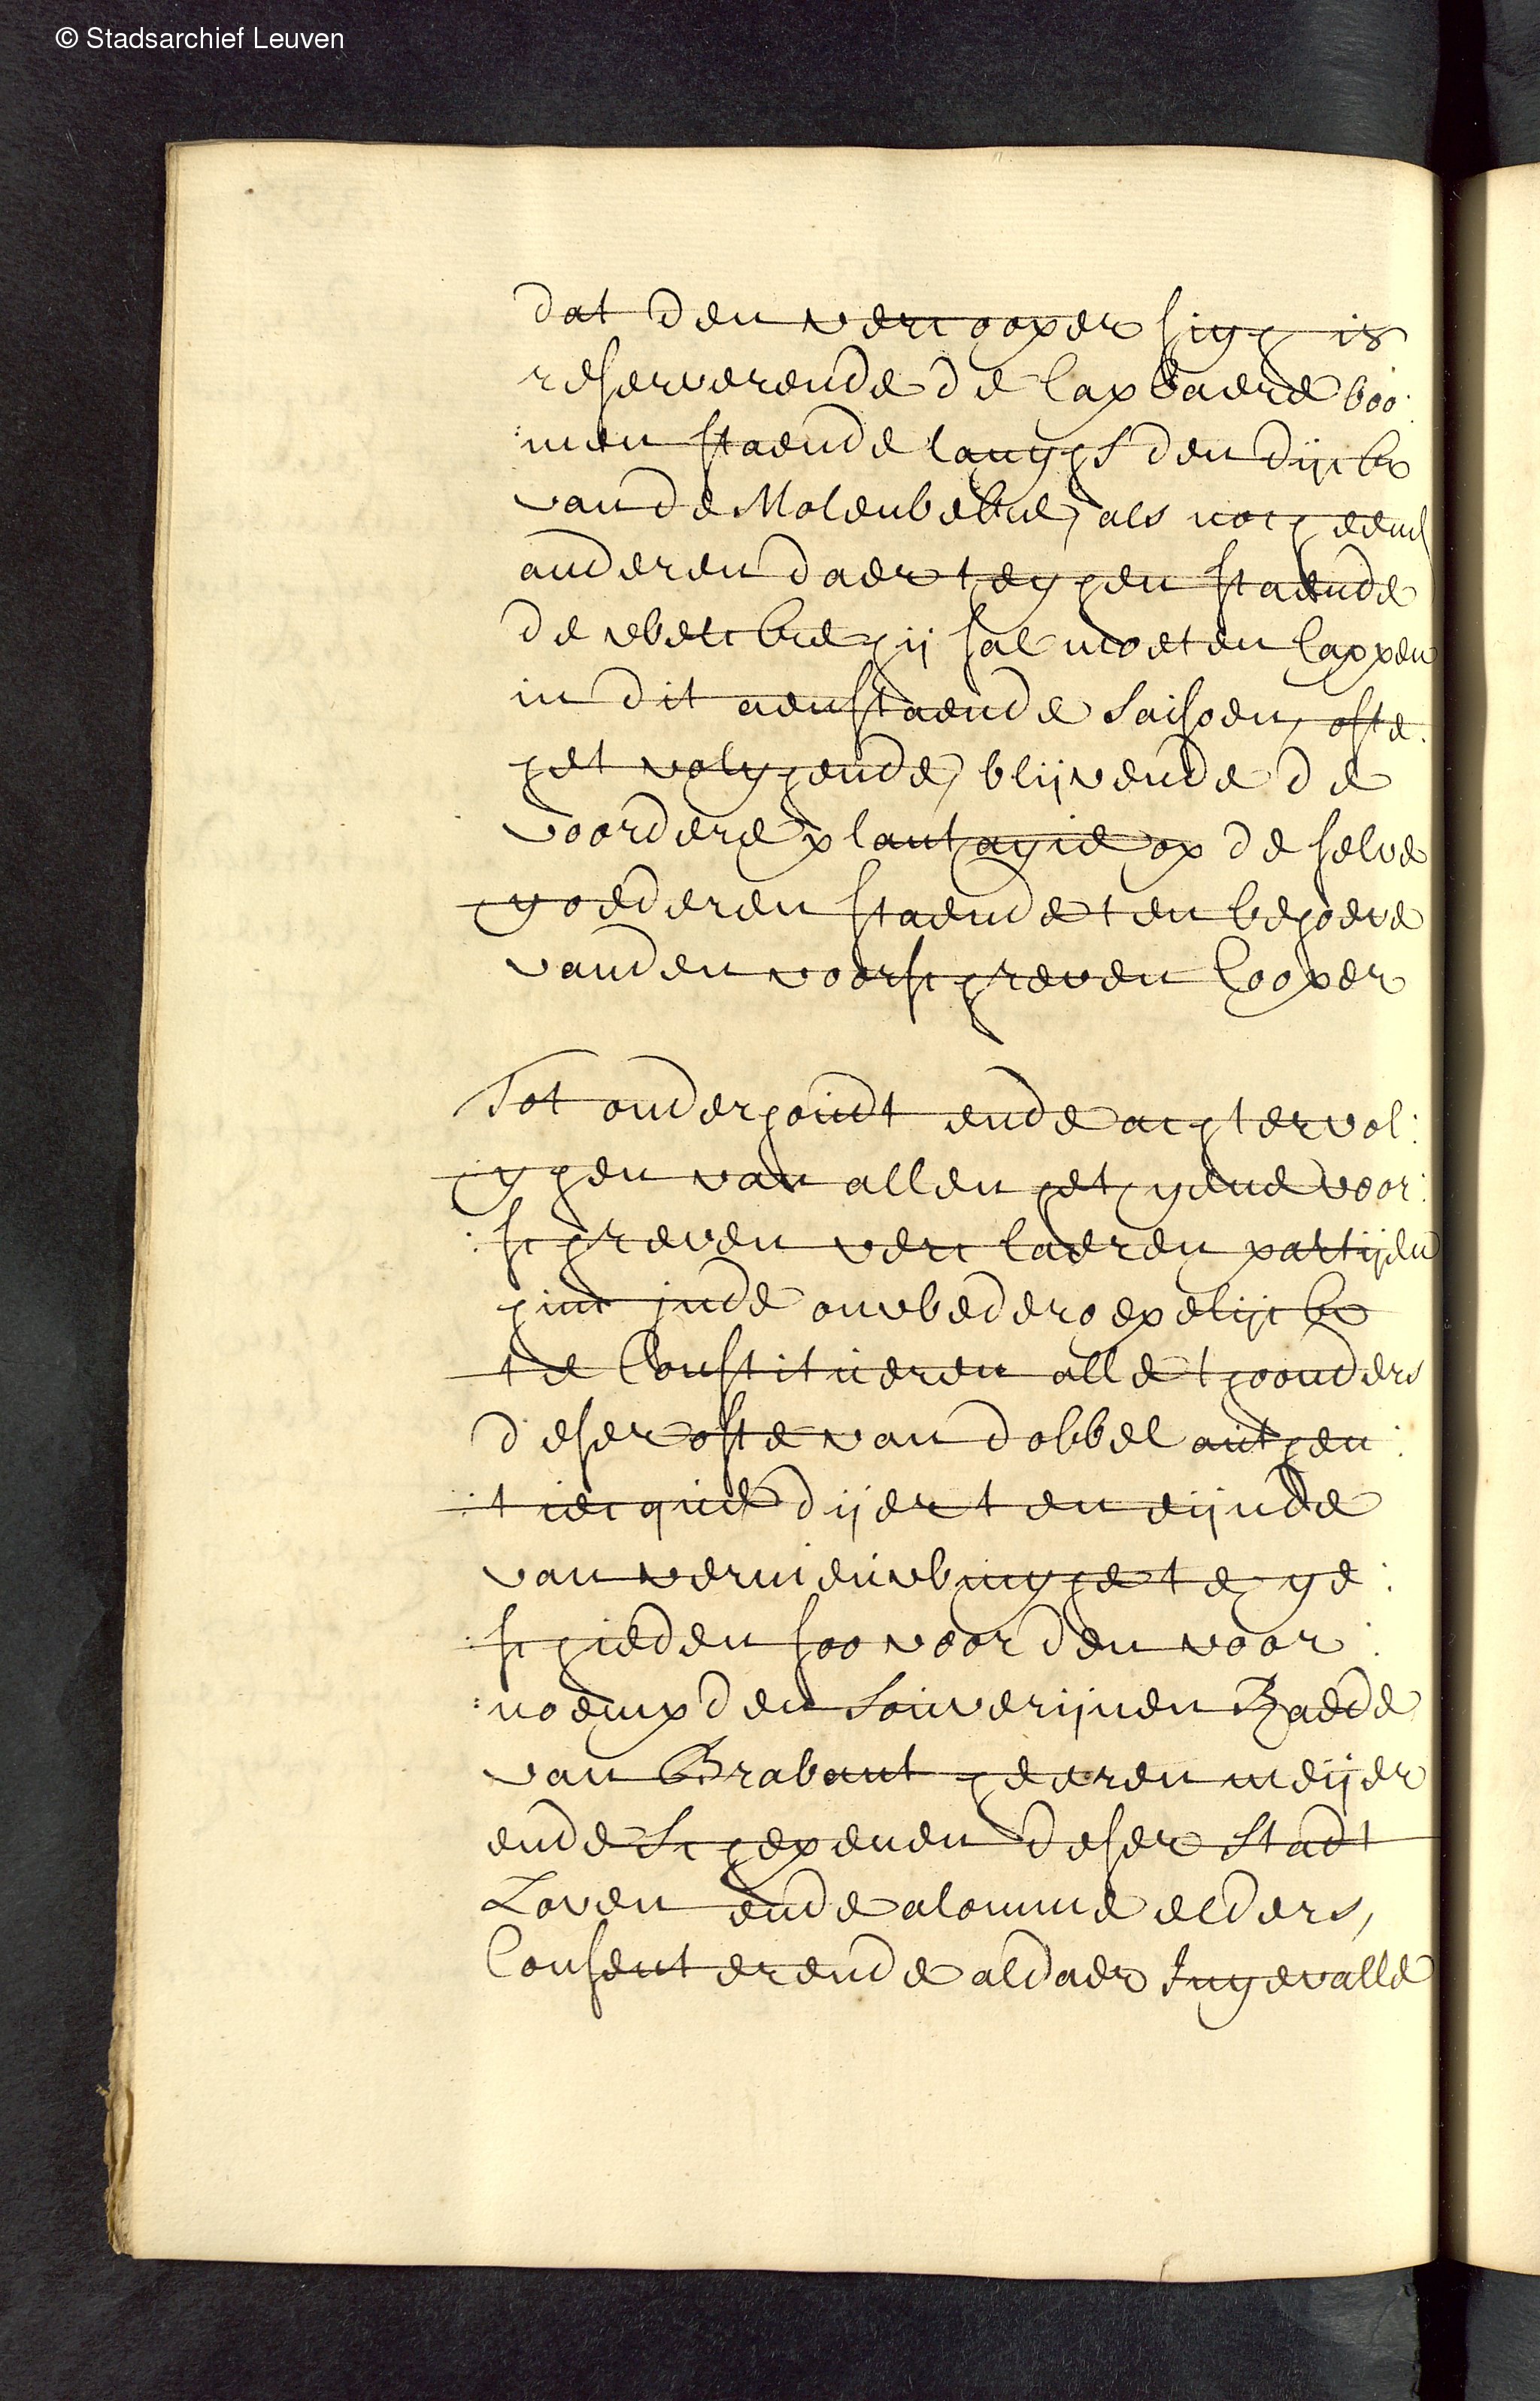 © Stadsarchief Leuven
dat den vercooper sigh is
reserverende de capbaere boo:
:men staende langhs den dijck
van de Molenbeke, als noch eene
anderen daer teghen staende
de welcke hij sal moeten cappen
in dit aenstaende saisoen, ofte
het volghende, blijvende de
voordere plantagie op de selve
goederen staende ten behoeve
vanden voorschreven cooper
Tot onderhoudt ende achtervol:
:ghen van allen het gene voor:
:schreven verclaeren partijen
hinc inde onwederoepelijck
te Constitueren alle thoonders
deser ofte van dobbel authen:
:ticque dijer ten eijnde
van vernieuwinghe te ge:
:schieden soo voor den voor:
:noempden Souverijnen Raede
van Brabant heeren meijer
ende Schepenen deser Stadt
Loven ende alomme elders,
Consenterende aldaer Ingevalle